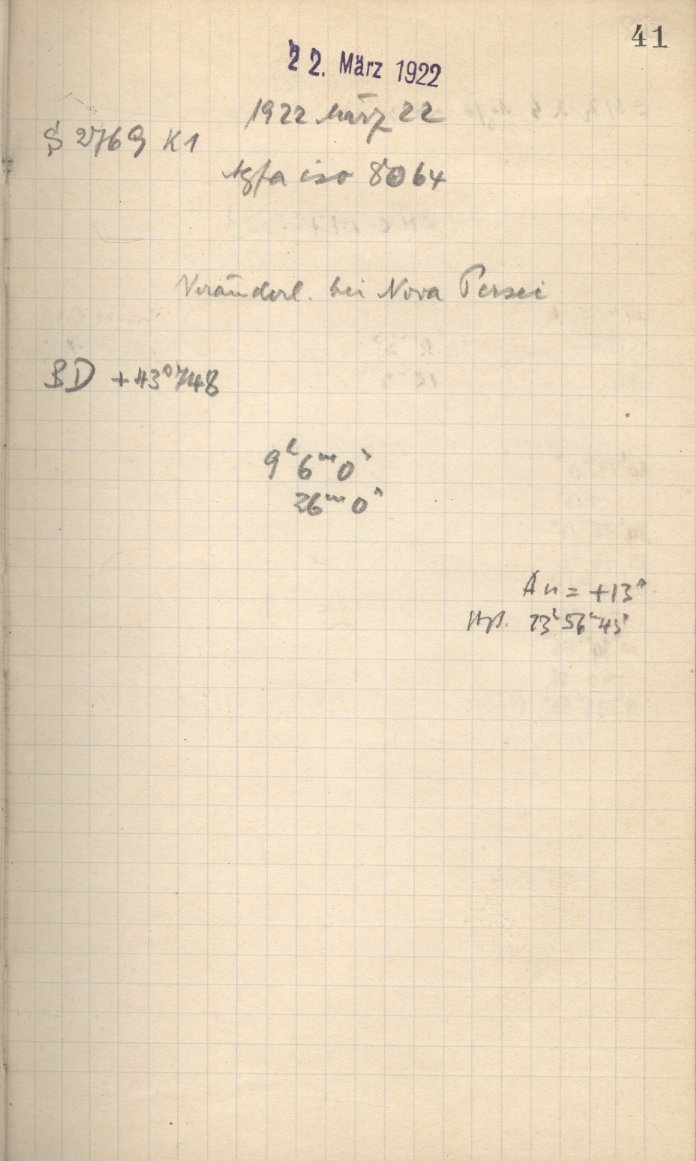 41
22. März 1922
1922 März 22
S 2769 K1
Agfa iso 8064
Veränderl. bei Nova Persei
BD +43°748
9ʰ6ᵐ0ˢ
26ᵐ0ˢ
An = +13ˢ
23ʰ56ᵐ43ˢ